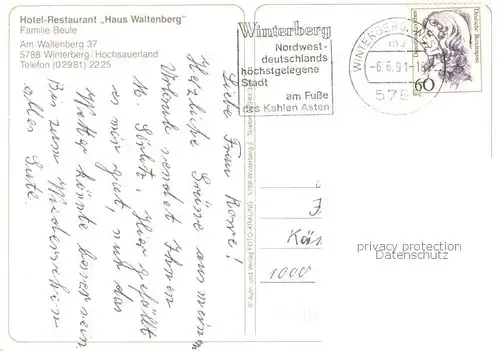 Hotel-Restaurant „Haus Waltenberg"
Familie Beule
Am Waltenberg 37
5788 Winterberg/Hochsauerland
Telefon (02981) 2225
Winterberg
Nordwest-
deutschlands
höchstgelegene
Stadt
am Fuße
des Kahlen Asten
WINTERBERG, WESTF
-6.6.91-18
578
Deutsche Bundespost
60
Liebe Frau
Herzliche Grüße aus meinem
Urlaub sendet Ihnen
M. Hier gefällt
es mir gut, nur das
Wetter könnte besser sein.
Bis zum Wiedersehen
alles Gute.
© Auh- und Verlag FOTO-KRALING · 5788 Winterberg 2 · Telefon
1000
privacy protection
Datenschutz